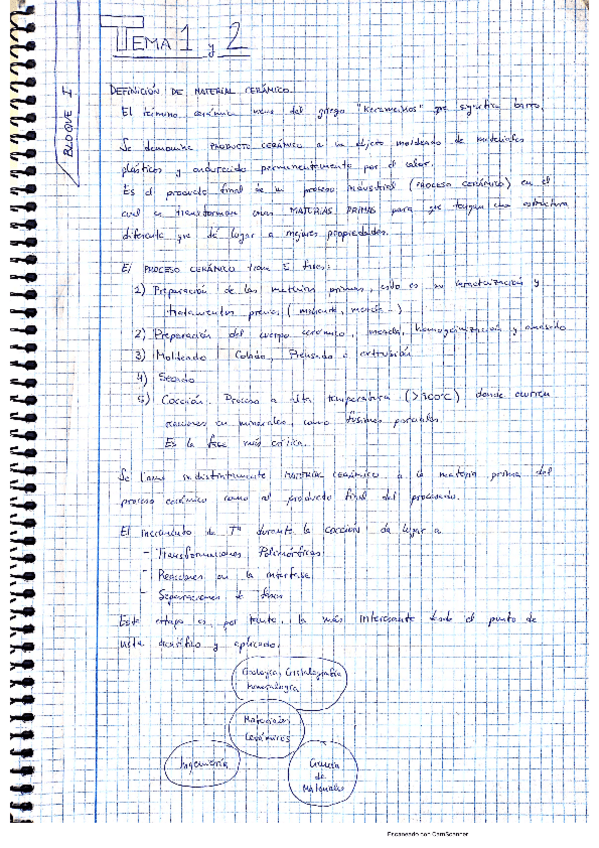 TEMA 1 y 2
BLOQUE I
DEFINICIÓN DE MATERIAL CERÁMICO
El término cerámica viene del griego "Keramikos" que significa barro.
Se denomina PRODUCTO CERÁMICO a un objeto moldeado de materiales
plásticos y endurecido permanentemente por el calor.
Es el producto final de un proceso industrial (PROCESO CERÁMICO) en el
cual se transforman unas MATERIAS PRIMAS para que tengan una estructura
diferente que dé lugar a mejores propiedades.
El PROCESO CERÁMICO tiene 5 fases:
1) Preparación de las materias primas, esto es su caracterización y
tratamientos previos, (molienda, mezcla...)
2) Preparación del cuerpo cerámico, mezcla, homogeneización y amasado
3) Moldeado: Colado, Prensado o extrusión
4) Secado
5) Cocción. Proceso a alta temperatura (>900°C) donde ocurren
reacciones en minerales, como fusiones parciales
Es la fase más crítica.
Se llama indistintamente MATERIAL CERÁMICO a la materia prima del
proceso cerámico como al producto final del
El incremento de Tª durante la cocción da lugar a
- Transformaciones Polimórficas
- Reacciones en la interfase
- Separaciones de fases
Esta etapa es, por tanto, la más interesante desde el punto de
vista científico y aplicado.
Geología, Cristalografía
Mineralogía
Materiales
Cerámicos
Ingeniería
Ciencia
de
Materiales
Escaneado con CamScanner